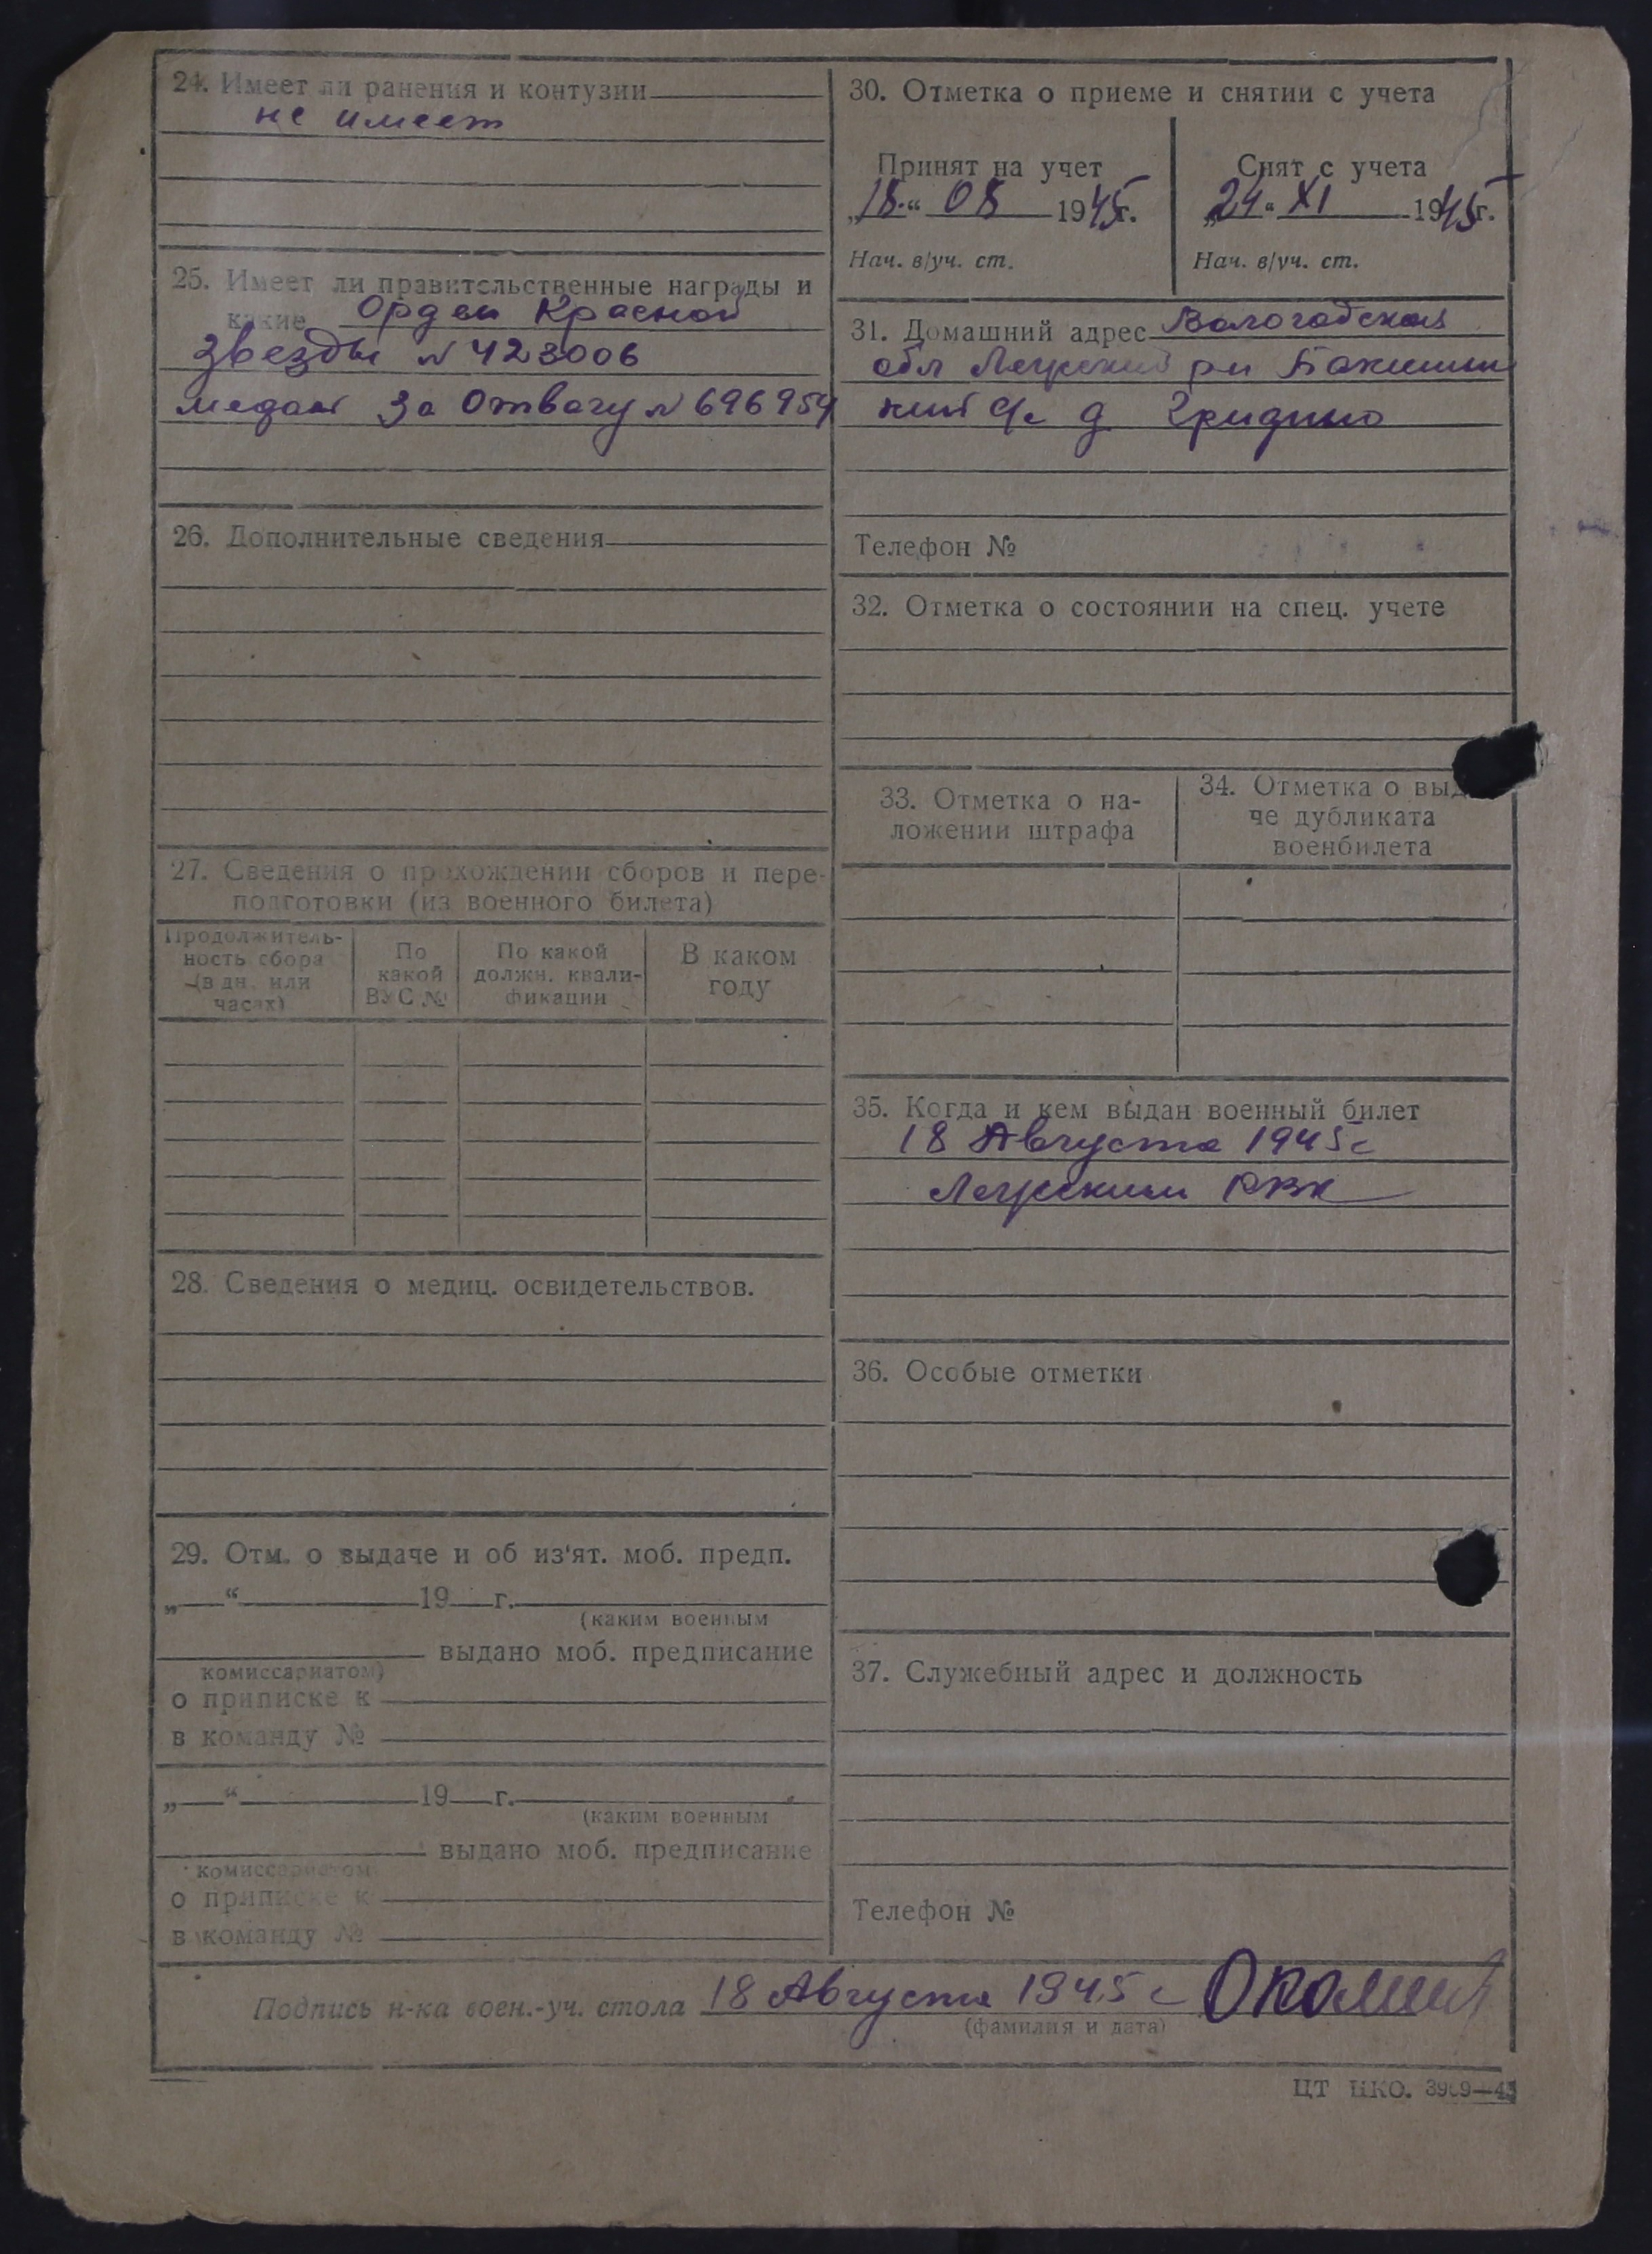 24. Имеет ли ранения и контузии
не имеет
25. Имеет ли правительственные награды и
какие Орден Красной
Звезды N 423006
медаль За Отвагу N 696954
26. Дополнительные сведения
27. Сведения о прохождении сборов и пере-
подготовки (из военного билета)
Продолжитель-
ность сбора
(в дн. или
часах)
По
какой
ВУС №
По какой
должн. квали-
фикации
В каком
году
28. Сведения о медиц. освидетельствов.
29. Отм. о выдаче и об из‘ят. моб. предп.
„ “ 19 г.
(каким военным
выдано моб. предписание
комиссариатом)
о приписке к
в команду №
„ “ 19 г.
(каким военным
выдано моб. предписание
комиссариатом
о приписке к
в команду №
30. Отметка о приеме и снятии с учета
Принят на учет
„18.“ 08 1945г.
Нач. в/уч. ст.
Снят с учета
„24“ XI 1945г.
Нач. в/уч. ст.
31. Домашний адрес Вологодская
обл р-н
с/с д Гридино
Телефон №
32. Отметка о состоянии на спец. учете
33. Отметка о на-
ложении штрафа
34. Отметка о выд
че дубликата
военбилета
35. Когда и кем выдан военный билет
18 Августа 1945 г
РВК
36. Особые отметки
37. Служебный адрес и должность
Телефон №
Подпись н-ка воен.-уч. стола 18 Августа 1945 г
(фамилия и дата)
ЦТ НКО.